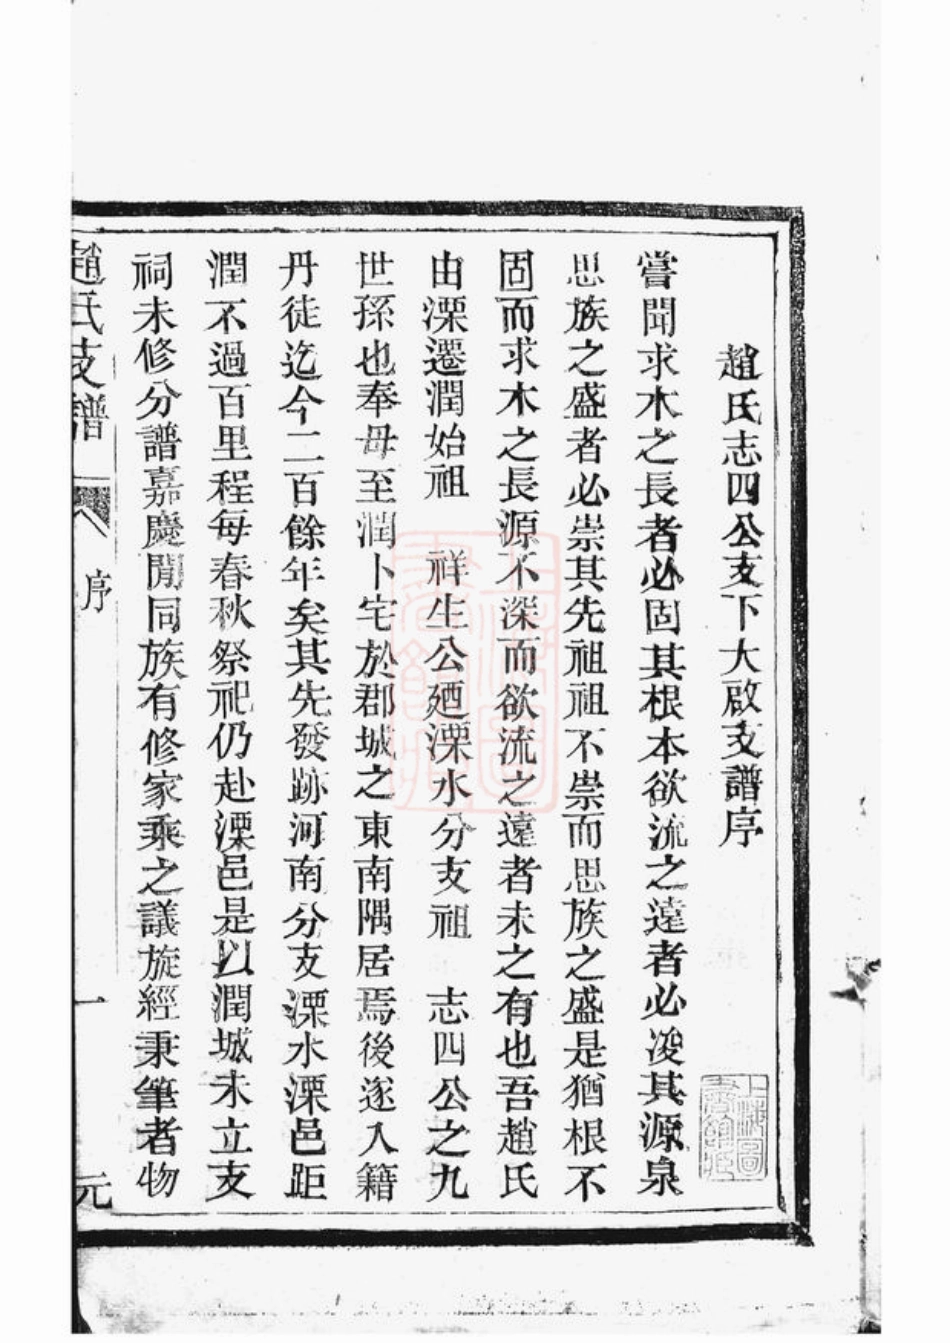 趙氏志四公支下大啟支譜序
嘗聞求木之長者必固其根本欲流之遠者必浚其源泉
思族之盛者必崇其先祖祖不崇而思族之盛是猶根不
固而求木之長源不深而欲流之遠者未之有也吾趙氏
由溧遷潤始祖 祥生公廼溧水分支祖 志四公之九
世孫也奉母至潤卜宅於郡城之東南隅居焉後遂入籍
丹徒迄今二百餘年矣其先發跡河南分支溧水溧邑距
潤不過百里程每春秋祭祀仍赴溧邑是以潤城未立支
祠未修分譜嘉慶閒同族有修家乘之議旋經秉筆者物
趙氏支譜 序 一 元
上海圖書館藏
上海圖書館藏